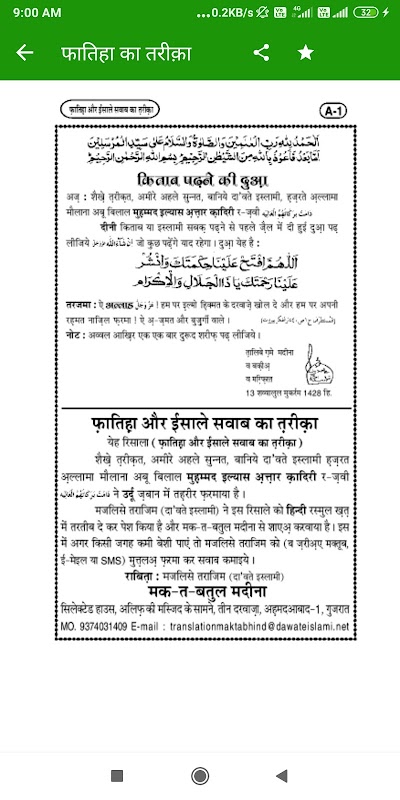 9:00 AM
...0.2KB/s
4G
32
फातिहा का तरीक़ा
फ़ातिहा और ईसाले सवाब का त़रीक़ा
A-1
اَلْحَمْدُ لِلّٰهِ رَبِّ الْعٰلَمِيْنَ وَالصَّلٰوةُ وَالسَّلَامُ عَلٰى سَيِّدِ الْمُرْسَلِيْنَ
اَمَّا بَعْدُ فَاَعُوْذُ بِاللّٰهِ مِنَ الشَّيْطٰنِ الرَّجِيْمِ بِسْمِ اللّٰهِ الرَّحْمٰنِ الرَّحِيْمِ
किताब पढ़ने की दुआ़
अज़ : शैख़े त़रीक़त, अमीरे अहले सुन्नत, बानिये दा'वते इस्लामी, ह़ज़रते अ़ल्लामा
मौलाना अबू बिलाल मुह़म्मद इल्यास अ़त्त़ार क़ादिरी र-ज़वी دَامَتْ بَرَكَاتُهُمُ الْعَالِيَه
दीनी किताब या इस्लामी सबक़ पढ़ने से पहले ज़ैल में दी हुई दुआ़ पढ़
लीजिये اِنْ شَآءَ اللّٰه عَزَّوَجَلَّ जो कुछ पढ़ेंगे याद रहेगा । दुआ़ येह है :
اَللّٰهُمَّ افْتَحْ عَلَيْنَا حِكْمَتَكَ وَانْشُرْ
عَلَيْنَا رَحْمَتَكَ يَا ذَا الْجَلَالِ وَالْاِكْرَام
तरजमा : ऐ अल्लाह عَزَّوَجَلَّ ! हम पर इ़ल्मो हि़क्मत के दरवाज़े खोल दे और हम पर अपनी
रह़मत नाज़िल फ़रमा ! ऐ अ़-ज़मत और बुज़ुर्गी वाले ।
नोट : अव्वल आख़िर एक एक बार दुरूद शरीफ़ पढ़ लीजिये ।
त़ालिबे ग़मे मदीना
व बक़ीअ़
व मग़्फ़िरत
13 शव्वालुल मुकर्रम 1428 हि.
फ़ातिह़ा और ईसाले सवाब का त़रीक़ा
येह रिसाला ( फ़ातिह़ा और ईसाले सवाब का त़रीक़ा )
शैख़े त़रीक़त, अमीरे अहले सुन्नत, बानिये दा'वते इस्लामी ह़ज़रत
अ़ल्लामा मौलाना अबू बिलाल मुह़म्मद इल्यास अ़त्त़ार क़ादिरी र-ज़वी
دَامَتْ بَرَكَاتُهُمُ الْعَالِيَه ने उर्दू ज़बान में तह़रीर फ़रमाया है ।
मजलिसे तराजिम (दा'वते इस्लामी) ने इस रिसाले को हिन्दी रस्मुल ख़त़
में तरतीब दे कर पेश किया है और मक-त-बतुल मदीना से शाएअ़ करवाया है । इस
में अगर किसी जगह कमी बेशी पाएं तो मजलिसे तराजिम को (ब ज़रीअ़ए मक्तूब,
ई-मेइल या SMS) मुत्त़लअ़ फ़रमा कर सवाब कमाइये ।
राबित़ा : मजलिसे तराजिम (दा'वते इस्लामी)
मक-त-बतुल मदीना
सिलेक्टेड हाउस, अलिफ़ की मस्जिद के सामने, तीन दरवाज़ा, अह़मदआबाद-1, गुजरात
MO. 9374031409 E-mail : translationmaktabhind@dawateislami.net